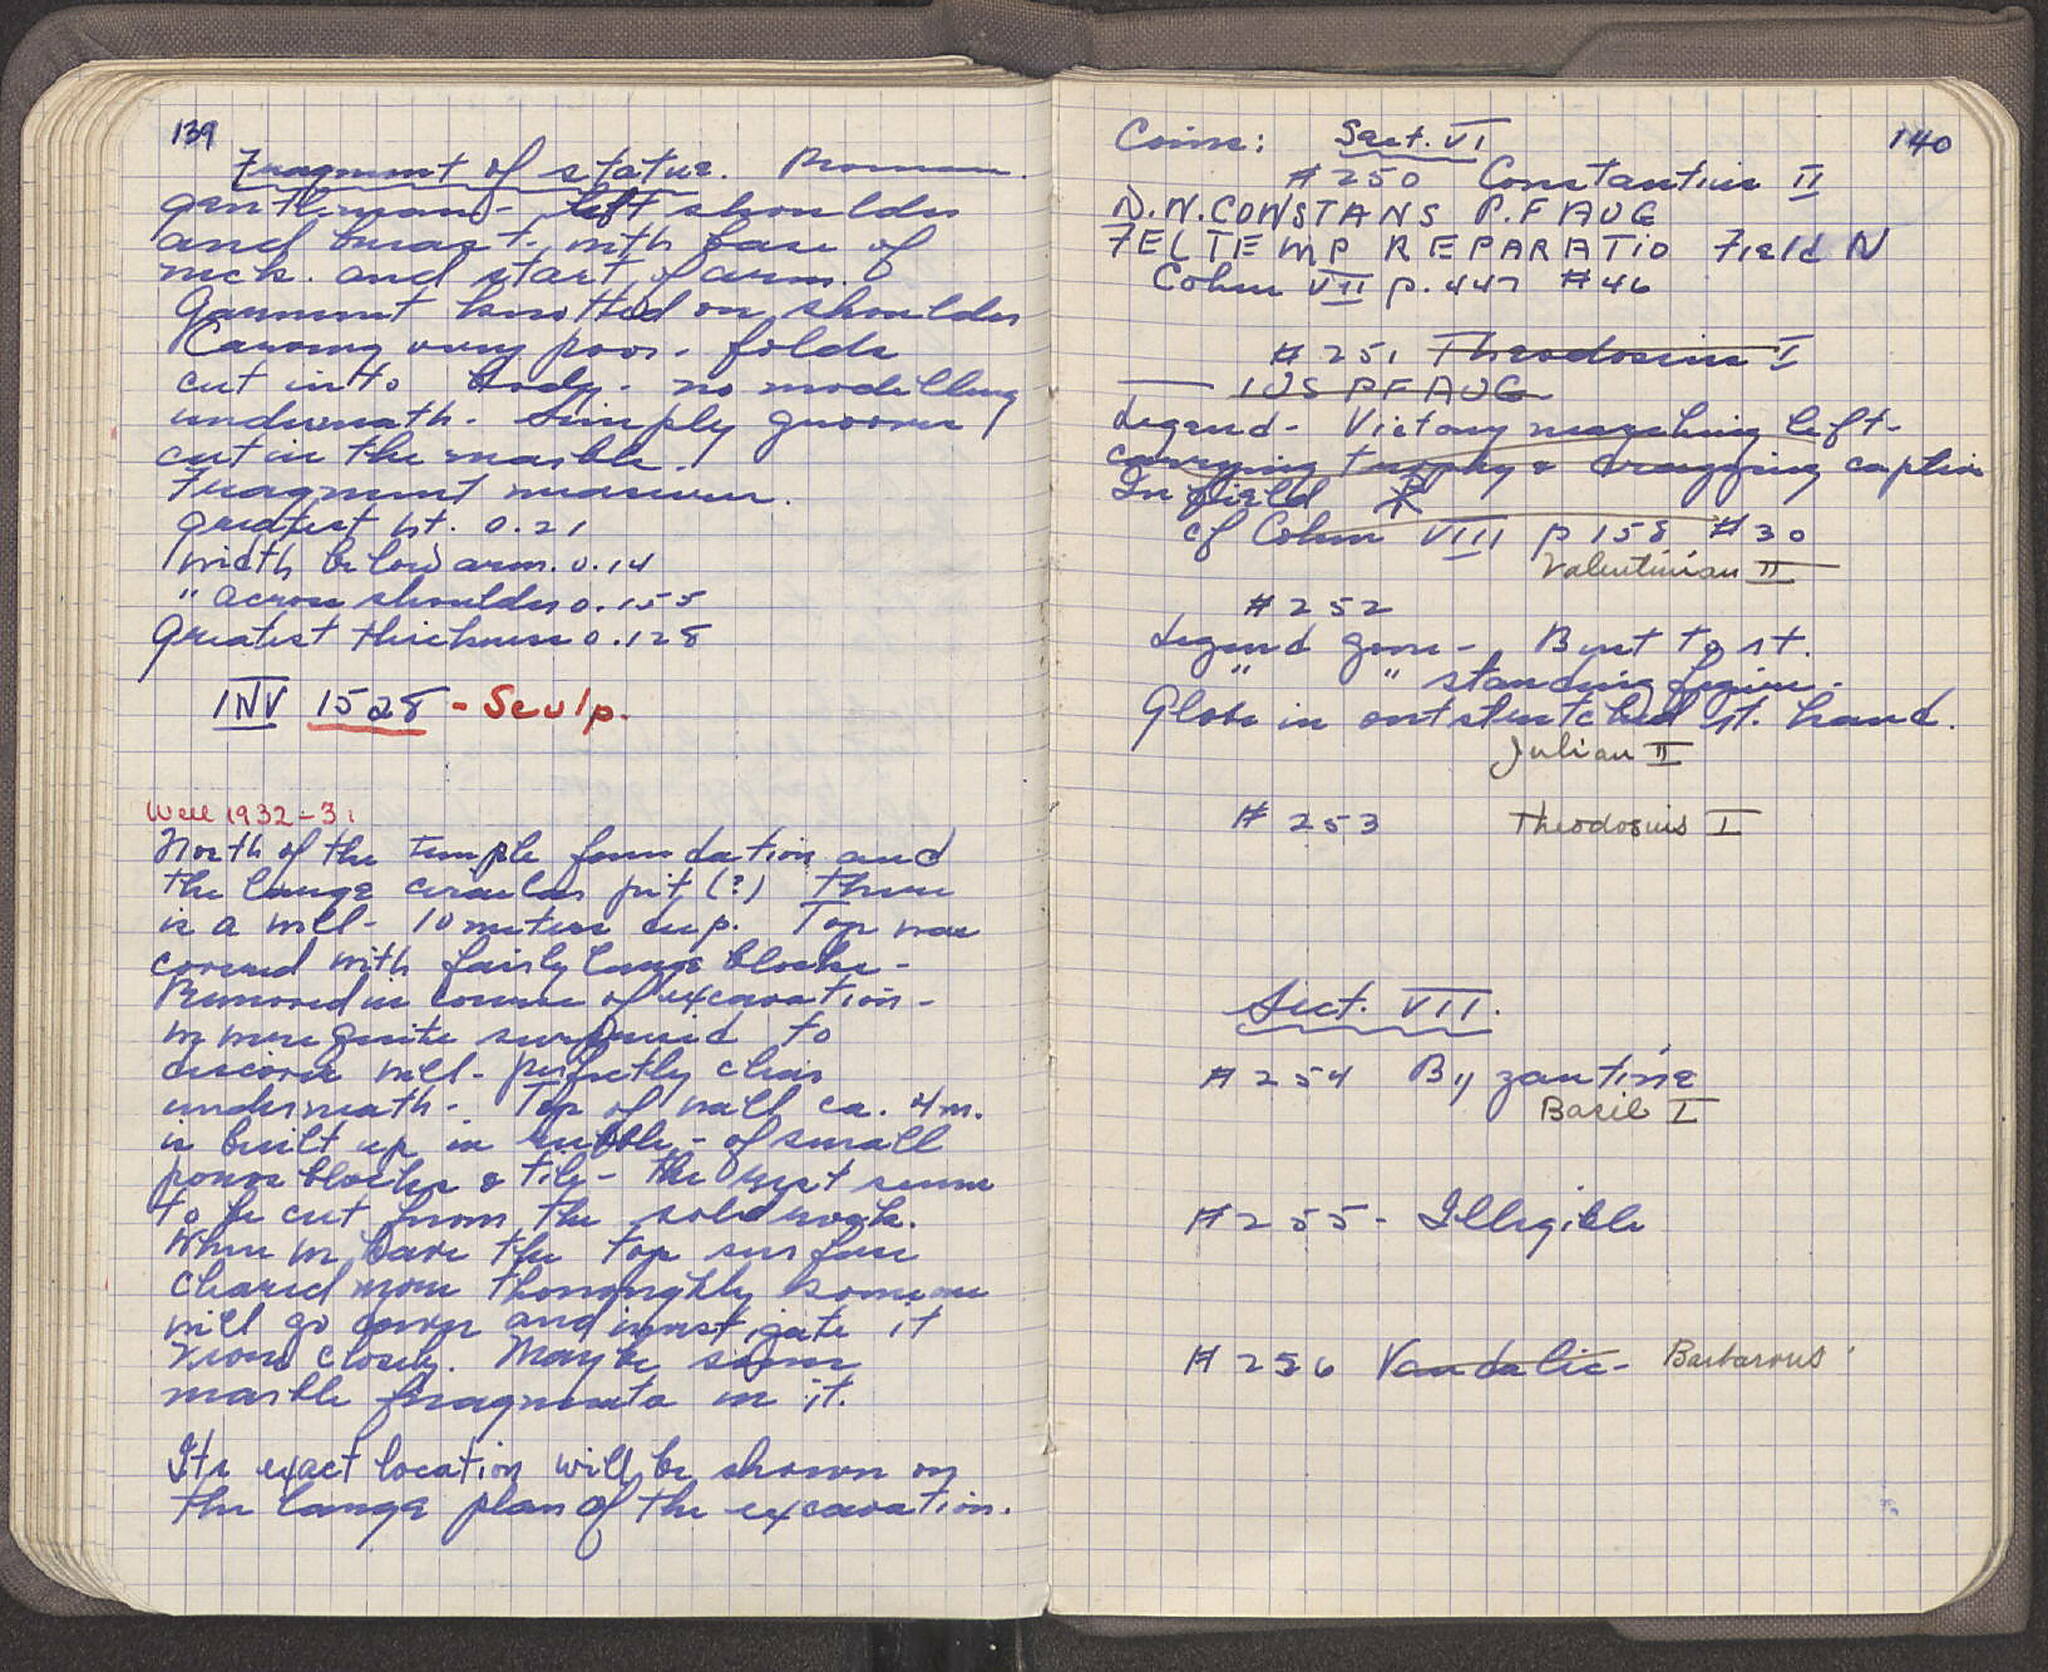 139
Fragment of statue. Roman
gentleman - left shoulder
and breast, with base of
neck. and start of arm.
Garment knotted on shoulder
Carving very poor - folds
cut into body - no modelling
underneath. Simply grooves
cut in the marble.
Fragment measures.
Greatest ht. 0.21
Width below arm. 0.14
" across shoulder 0.155
Greatest thickness 0.128
INV 1528 - Sculp.
Well 1932-3:
North of the temple foundation and
the large circular pit (?) there
is a well - 10 meters deep. Top was
covered with fairly large blocks -
Removed in course of excavation -
we were quite surprised to
discover well - perfectly clear
underneath - Top of well ca. 4m.
is built up in rubble - of small
poros blocks & tile - the rest seems
to be cut from the solid rock.
When we have the top surface
cleared more thoroughly someone
will go down and investigate it
more closely. Maybe some
marble fragments in it.
Its exact location will be shown on
the large plan of the excavation.
140
Coins: Sect. VI
#250 Constantius II
D.N.CONSTANS P.F AUG
FELTEMP REPARATIO Field N
Cohen VII p. 447 #46
#251 Theodosius I
— IUS PF AUG
Legend - Victory marching left -
carrying trophy & dragging captive
In field
cf Cohen VIII p 158 #30
Valentinian II
#252
Legend gone - Bust to rt.
" " standing figure -
Globe in outstretched rt. hand.
Julian II
#253 Theodosius I
Sect. VII.
#254 Byzantine
Basil I
#255 - Illegible
#256 Vandalic - Barbarous